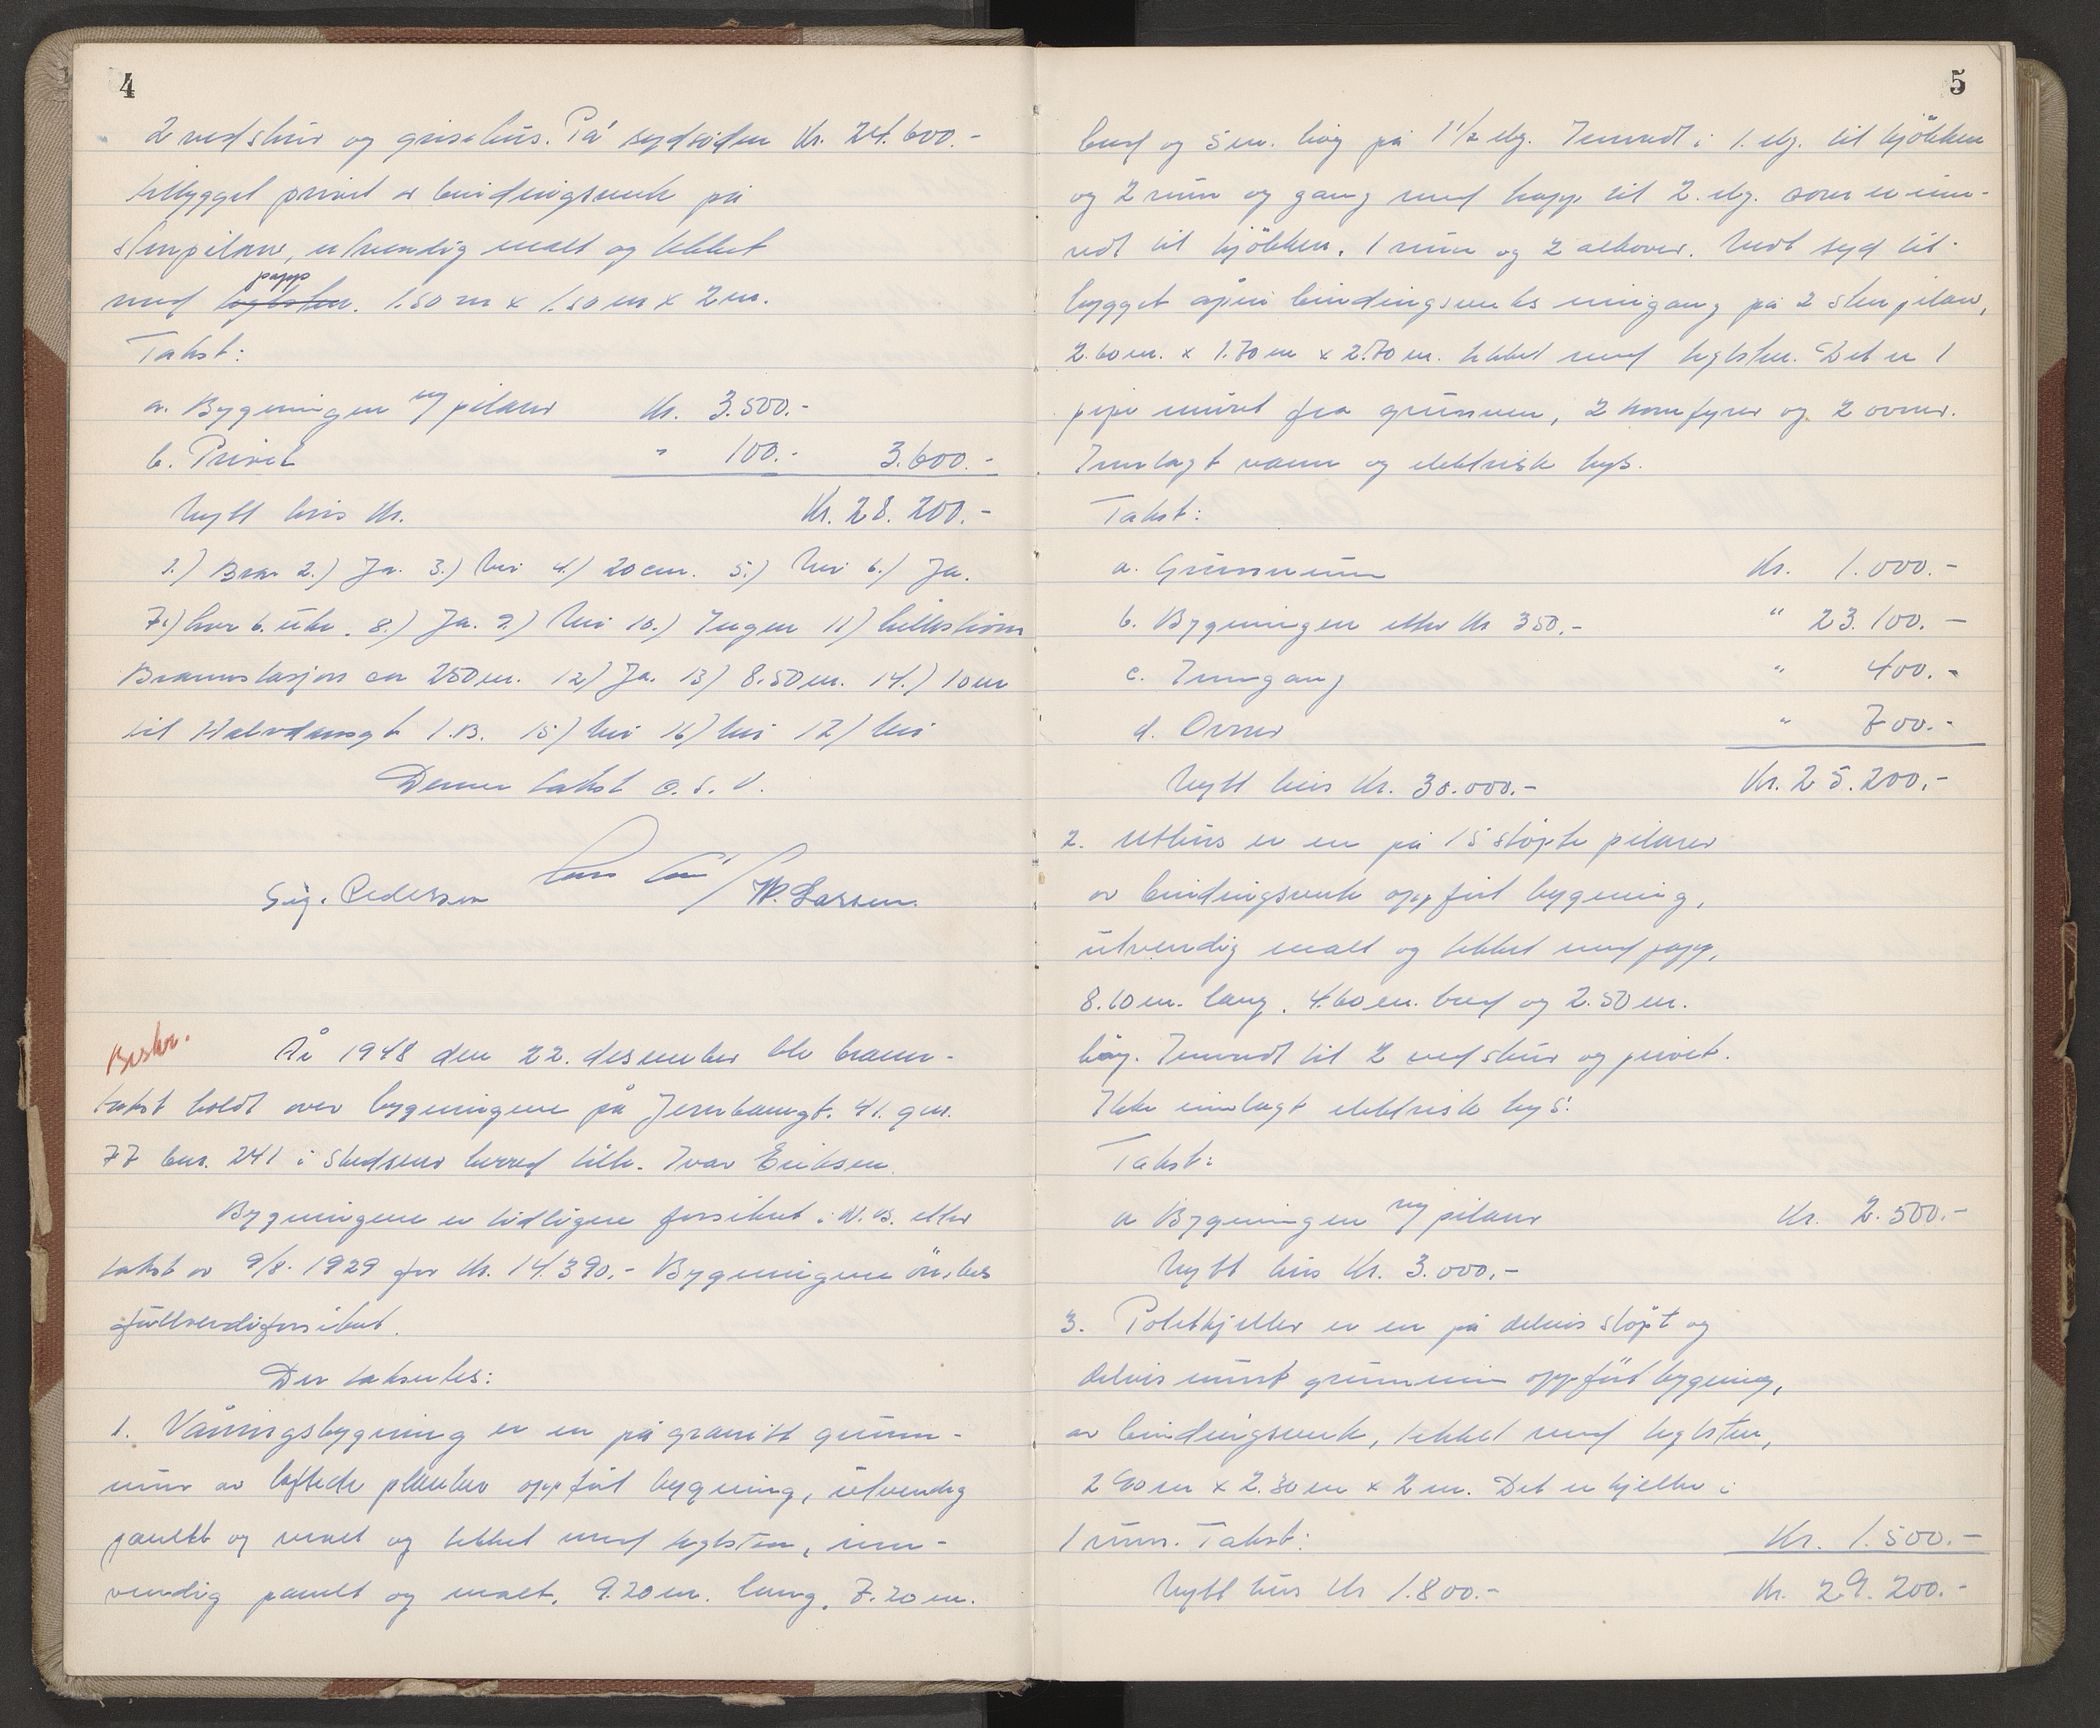 4
2 vedskur og grisehus. På sydsiden Kr. 24.600.-
tilbygget privet av bindingsverk på
stenpilarer, utvendig malt og tekket
papp
med teglsten. 1.50 m x 1.50 m x 2 m.
Takst:
a. Bygningen m/ pilarer Kr. 3.500.-
b. Privet " 100.- 3.600.-
Nytt hus Kr. Kr. 28.200.-
1.) Bra 2.) Ja. 3.) Nei 4.) 20 cm. 5.) Nei 6.) Ja.
7.) hver 6. uke. 8.) Ja. 9.) Nei 10.) Ingen 11.)
Brannstasjon ca 250 m. 12.) Ja. 13.) 8.50 m. 14.) 10 m
til Halvdansgt 1.B. 15.) Nei 16.) Nei 17.) Nei
Denne takst o.s.v.
Sig. Pedersen Lars / W. Larsen.
Beskr.
År 1948 den 22. desember ble brann-
takst holdt over bygningene på Jernbanegt. 41. gnr.
77 bnr. 241 i Skedsmo herred tilh. Ivar Eriksen.
Bygningene er tidligere forsikret i N.B. etter
takst av 9/8. 1929 for Kr. 14.390.- Bygningene önskes
fullverdiforsikret.
Der takseres:
1. Våningsbygning er en på granitt grunn-
mur av laftede planker oppfört bygning, utvendig
panelt og malt og tekket med teglsten, inn-
vendig panelt og malt. 9.20 m. lang. 7.20 m.
5
bred og 5 m. höy på 1 1/2 etg. Innredt i 1. etg. til kjökken
og 2 rum og gang med trapp til 2. etg. som er inn-
redt til kjökken, 1 rum og 2 alkover. Mot syd til-
bygget åpen bindingsverks inngang på 2 stenpilarer,
2.60 m. x 1.70 m x 2.70 m. tekket med teglsten. Det er 1
pipe muret fra grunnen, 2 komfyrer og 2 ovner.
Innlagt vann og elektrisk lys.
Takst:
a. Grunnmur Kr. 1.000.-
b. Bygningen etter Kr 350.- " 23.100.-
c. Inngang " 400.-
d. Ovner " 700.-
Nytt hus Kr. 30.000.- Kr. 25.200.-
2. Uthus er en på 15 stöpte pilarer
av bindingsverk oppfört bygning,
utvendig malt og tekket med papp,
8.10 m. lang. 4.60 m. bred og 2.50 m.
höy. Innredt til 2 vedskur og privet.
Ikke innlagt elektrisk lys.
Takst:
a Bygningen m/ pilarer Kr. 2.500.-
Nytt hus Kr. 3.000.-
3. Potetkjeller er en på delvis stöpt og
delvis muret grunnmur oppfört bygning,
av bindingsverk, tekket med teglsten,
2.90 m x 2.30 m x 2 m. Det er kjeller i
1 rum. Takst: Kr. 1.500.-
Nytt hus Kr 1.800.- Kr. 29.200.-